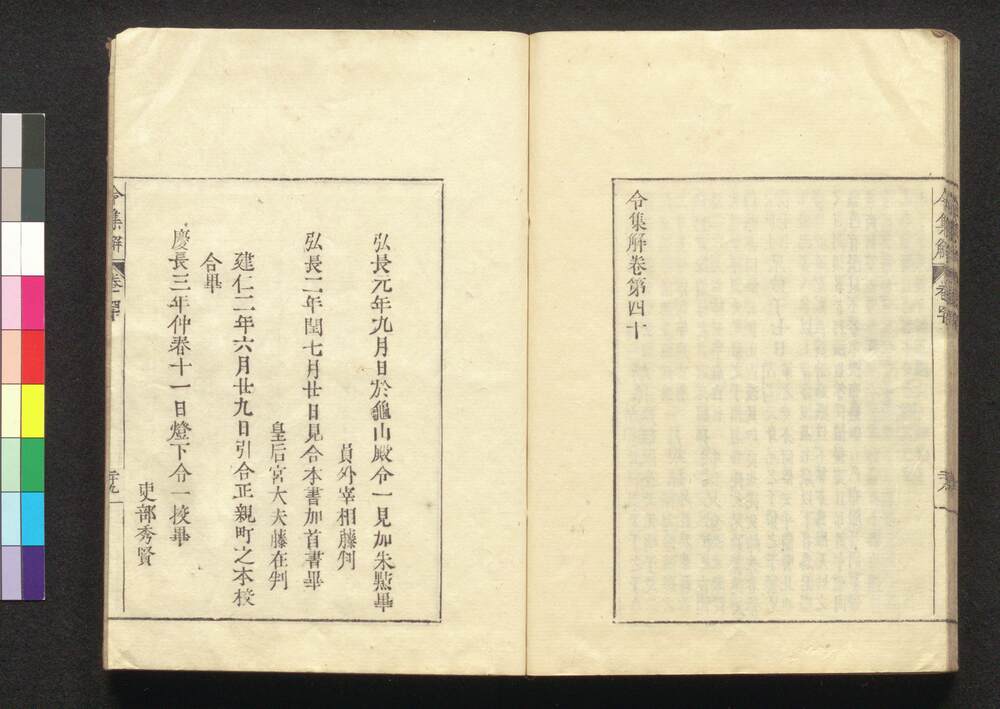 令集解
卷四十
令集解卷第四十
弘長元年九月日於龜山殿令一見加朱㸃畢
員外宰相藤判
弘長二年閏七月廿日見合本書加首書畢
皇后宮大夫藤在判
建仁二年六月廿九日引合正親町之本校
合畢
慶長三年仲春十一日燈下令一挍畢
吏部秀賢
令集解
卷四十